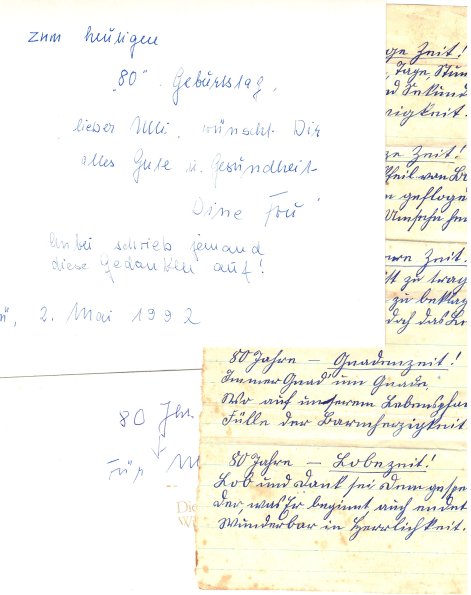 zum heutigen
"80" Geburtstag,
lieber Ulli, wünscht Dir
alles Gute u. Gesundheit
Deine Frau
schrieb jemand
diese Gedanken auf!
2. Mai 1992
80 Jhr.
Für
Die
ge Zeit!
Tage, Stun
nd Sekund
igkeit.
ge Zeit!
Pfeil von
geflogen
Umsehn
ere Zeit.
ist zu trag
zu beklag
doch das Le
80 Jahre – Gnadenzeit!
Immer Gnad' um Gnade,
Wo auf unserem Lebenspfad
Fülle der Barmherzigkeit
80 Jahre – Lobezeit!
Lob und Dank sei dem
der, was Er beginnt, auch endet
Wunderbar in Herrlichkeit.